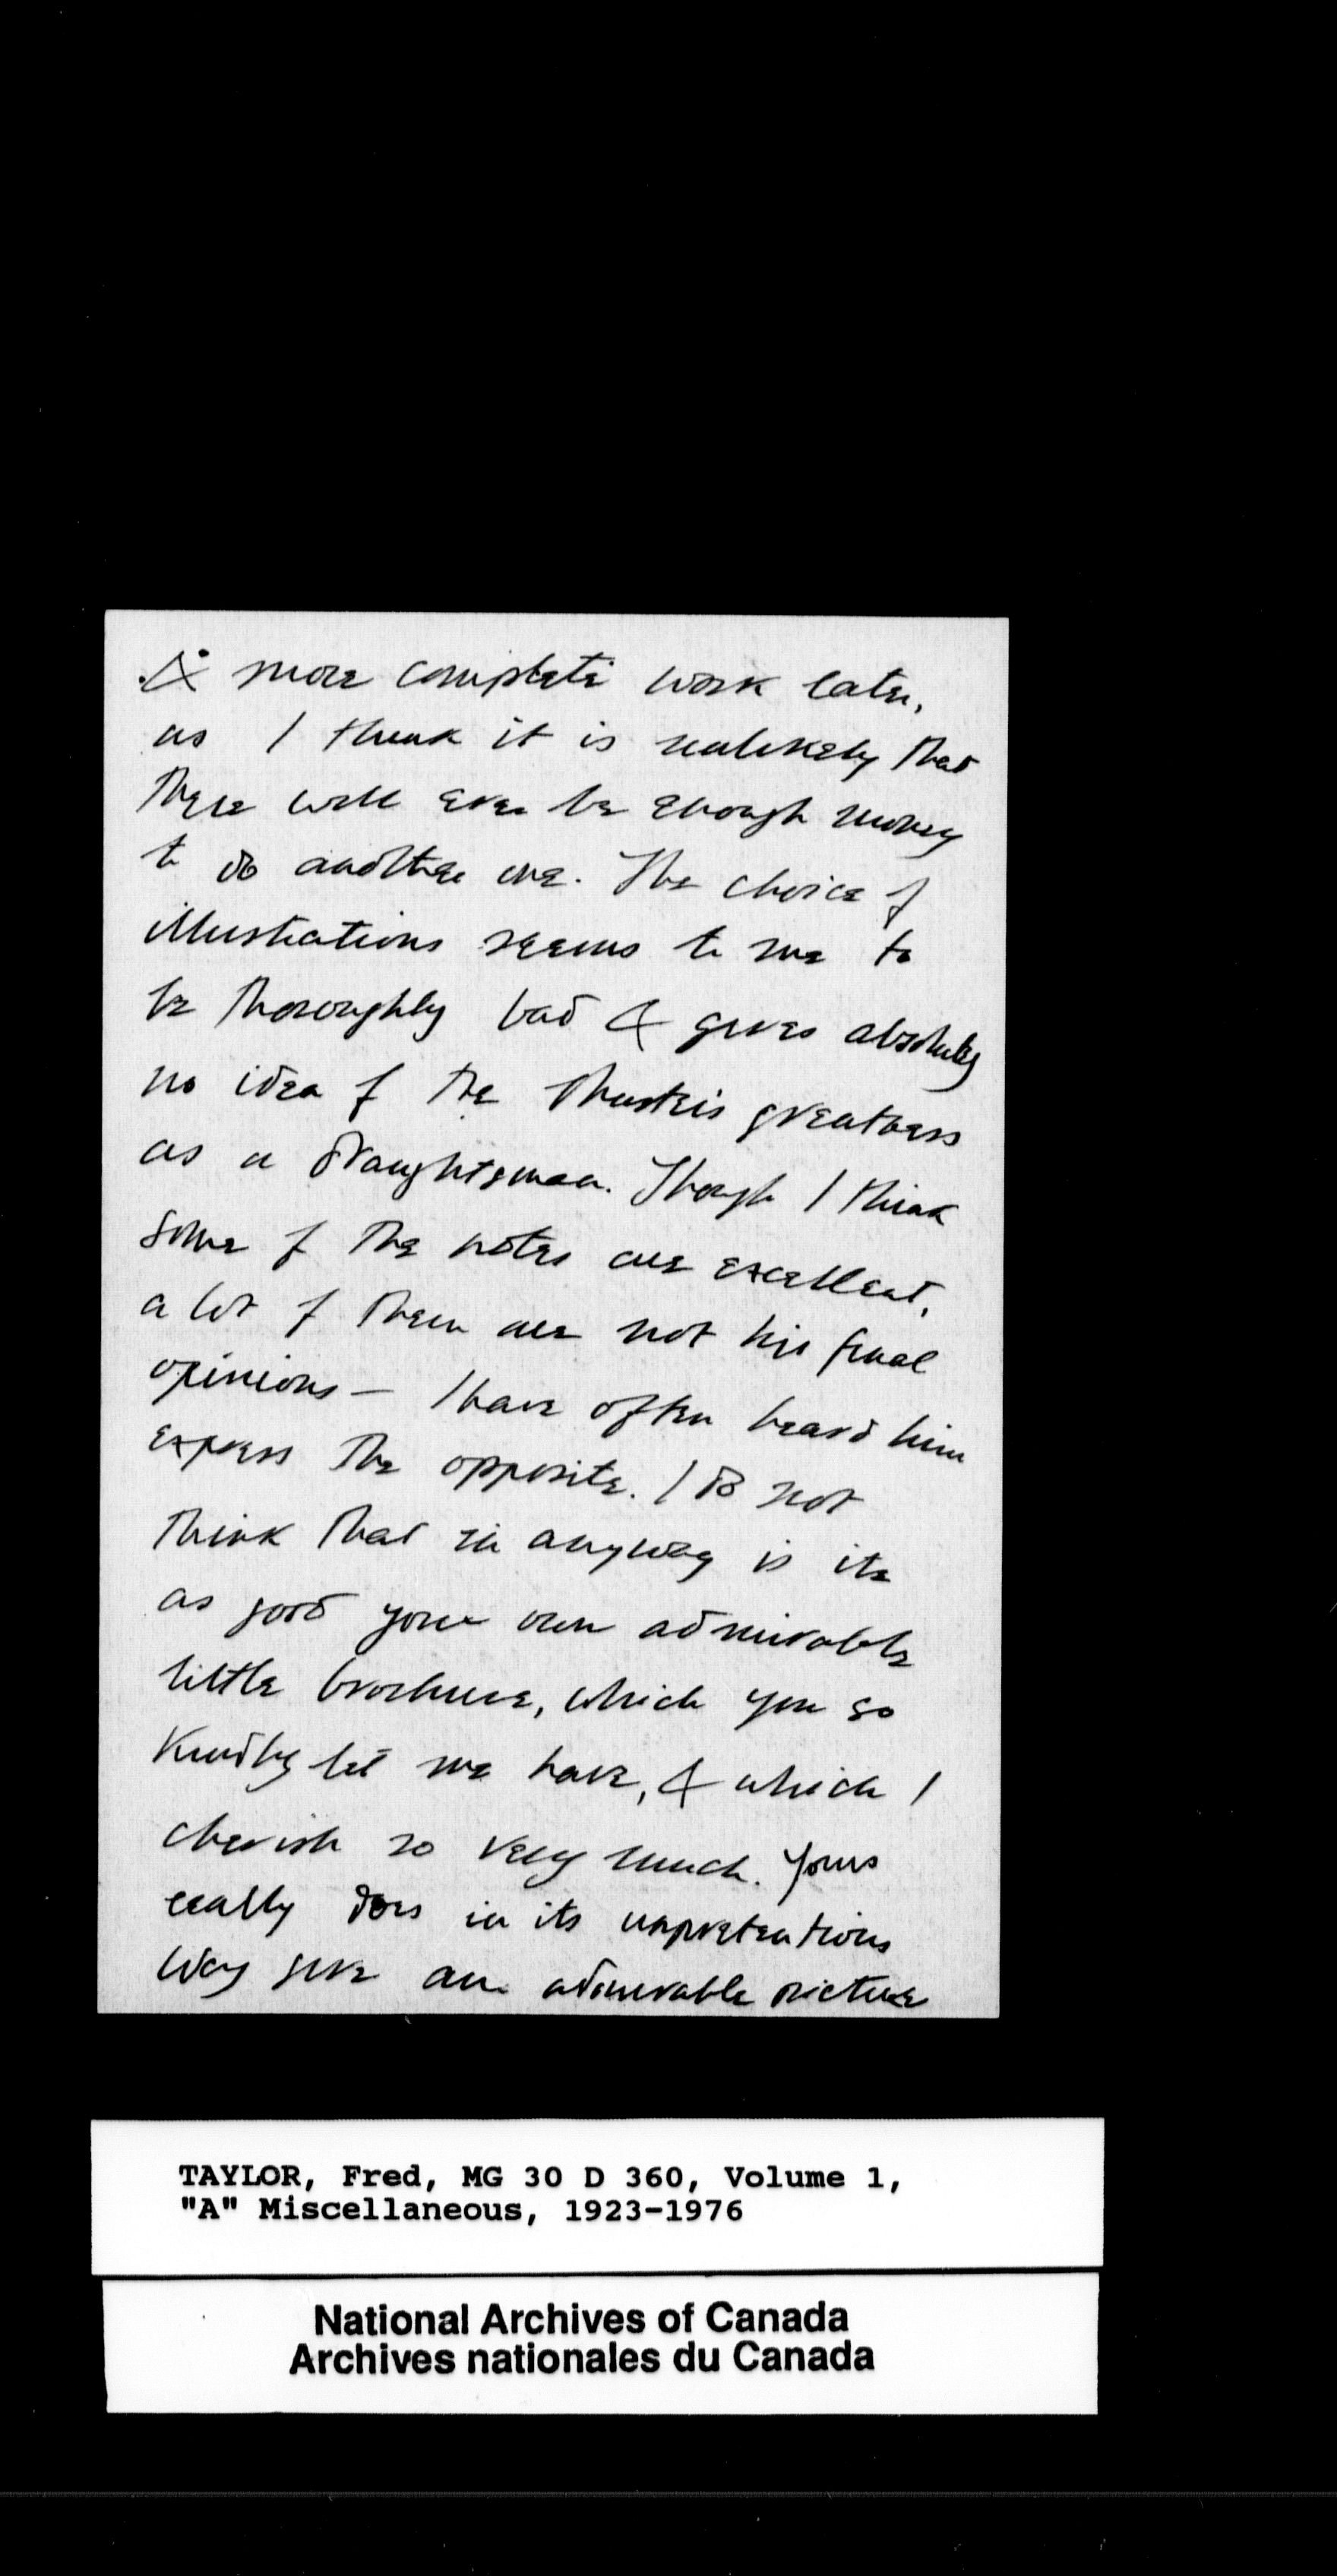 A more complete work later,
as I think it is unlikely that
there will ever be enough money
to do another one. The choice of
illustrations seems to me to
be thoroughly bad & gives absolutely
no idea of the Master's greatness
as a draughtsman. Though I think
some of the notes are excellent,
a lot of them are not his final
opinions — I have often heard him
express the opposite. I do not
think that in anyway is its
as good your own admirable
little brochure, which you so
Kindly let me have, & which I
cherish so very much. Yours
really does in its unpretentious
way give an admirable picture
TAYLOR, Fred, MG 30 D 360, Volume 1,
"A" Miscellaneous, 1923-1976
National Archives of Canada
Archives nationales du Canada